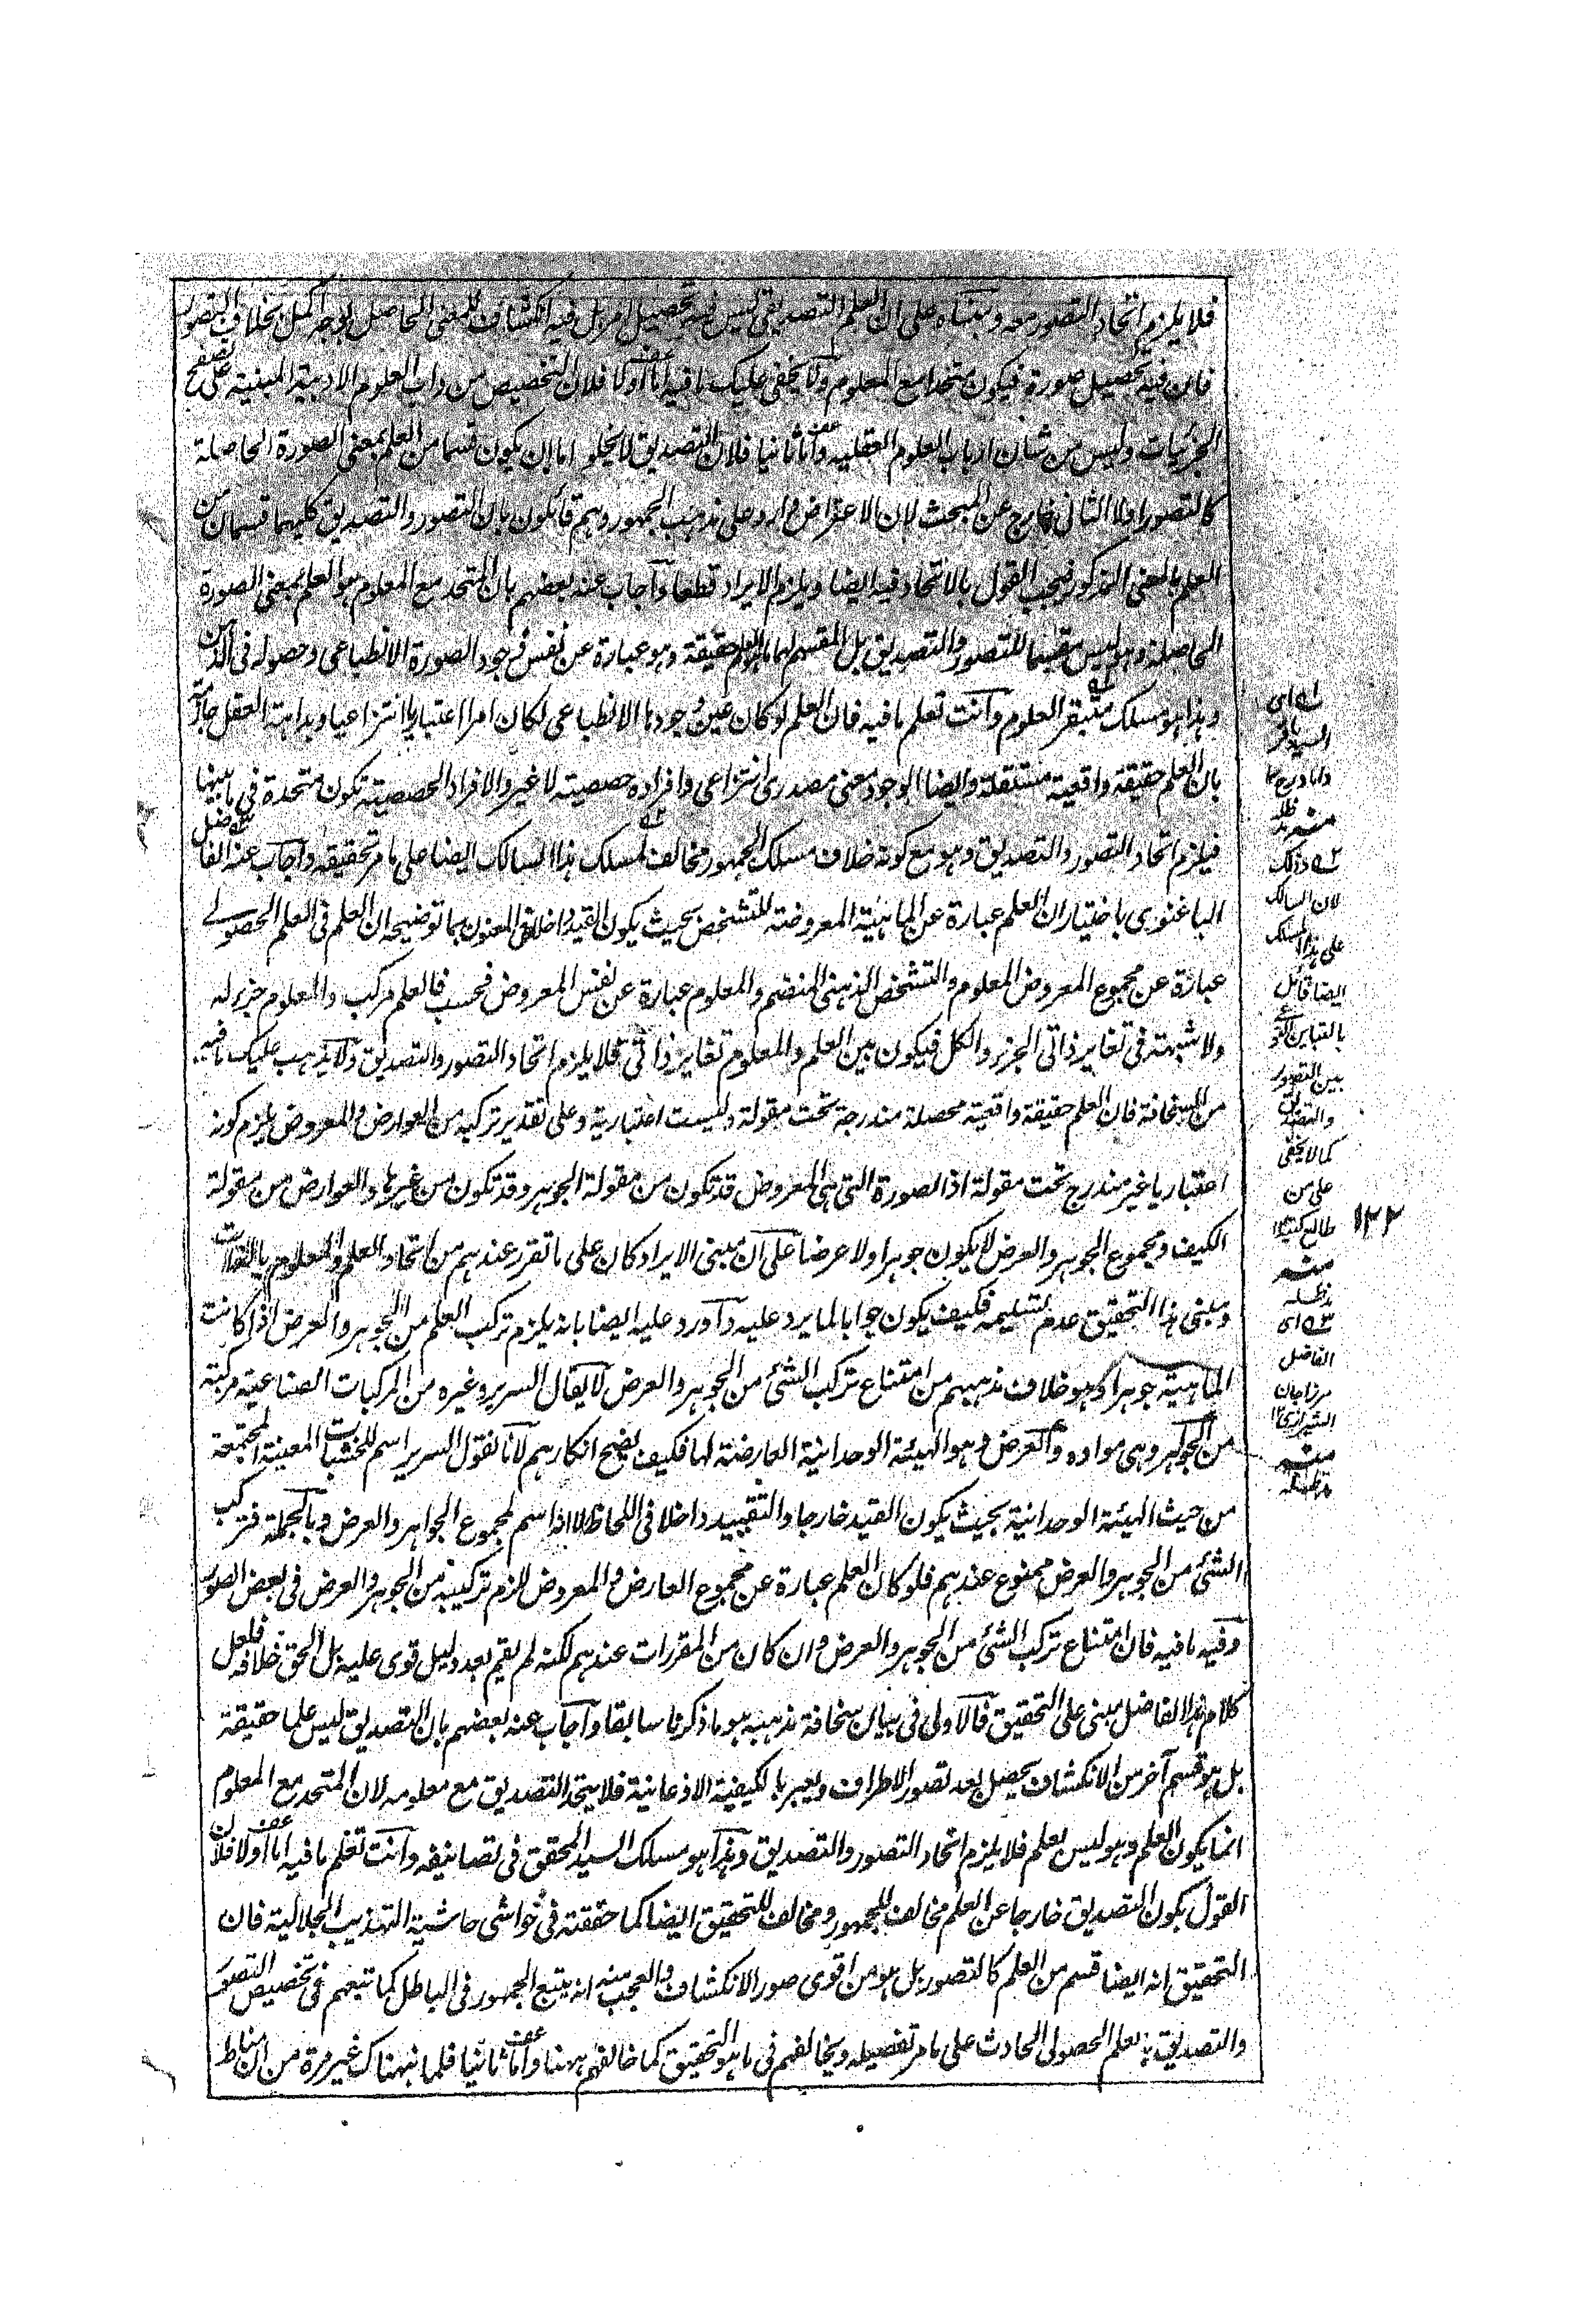 فلا يلزم اتحاد التصور معه ومبناه على ان العلم التصديقي ليس فيه تحصيل امر بل فيه انكشاف للمعنى الحاصل بوجه اكمل بخلاف التصور
فان فيه تحصيل صورة فيكون متحدا مع المعلوم ولا يخفى عليك ما فيه اما اولا فلان التخصيص من داب العلوم الادبية المبنية على تصفح
الجزئيات وليس من شان ارباب العلوم العقلية واما ثانيا فلان التصديق لا يخلو اما ان يكون قسما من العلم بمعنى الصورة الحاصلة
كالتصور اولا الثاني خارج عن المبحث لان الاعتراض وارد على مذهب الجمهور وهم قائلون بان التصور والتصديق كليهما قسمان من
العلم بالمعنى المذكور فيجب القول بالاتحاد فيه ايضا ويلزم الايراد قطعا وآجاب عنه بعضهم بان المتحد مع المعلوم هو العلم بمعنى الصورة
الحاصلة وهو ليس مقسما للتصور والتصديق بل المقسم لهما ما هو العلم حقيقة وهو عبارة عن نفس وجود الصورة الانطباعي وحصوله في الذهن
وهذا هو مسلك متبقر العلوم وآنت تعلم ما فيه فان العلم لو كان عين وجودها الانطباعي لكان امرا اعتباريا انتزاعيا وبداهة العقل جازمة
بان العلم حقيقة واقعية مستقلة وايضا الوجود معنى مصدري انتزاعي وافراده حصصية لا غير والافراد الحصصية تكون متحدة في ما بينها
فيلزم اتحاد التصور والتصديق وهو مع كونه خلاف مسلك الجمهور مخالف لمسلك هذا السالك ايضا على ما مر تحقيقه وآجاب عنه الفاضل
الباغنوى باختيار ان العلم عبارة عن الماهية المعروضة للتشخص بحيث يكون القيد داخلا في المعنون بما توضيحه ان العلم في العلم الحصولے
عبارة عن مجموع المعروض المعلوم والتشخص الذهني المنضم والمعلوم عبارة عن نفس المعروض فحسب فالعلم مركب والمعلوم جزء له
ولا شبهة في تغاير ذاتي الجزء والكل فيكون بين العلم والمعلوم تغاير ذاتي فلا يلزم اتحاد التصور والتصديق ولا يذهب عليك ما فيه
من السخافة فان العلم حقيقة واقعية محصلة مندرجة تحت مقولة وليست اعتبارية وعلى تقدير تركبه من العوارض والمعروض يلزم كونه
اعتباريا غير مندرج تحت مقولة اذ الصورة التي هي المعروض قد تكون من مقولة الجوهر وقد تكون من غيرها والعوارض من مقولة
الكيف ومجموع الجوهر والعرض لا يكون جوهرا ولا عرضا على ان مبنى الايراد كان على ما تقرر عندهم من اتحاد العلم والمعلوم بالذات
ومبنى هذا التحقيق عدم تسليمه فكيف يكون جوابا لما يرد عليه وآورد عليه ايضا بانه يلزم تركب العلم من الجوهر والعرض اذا كانت
الماهية جوهرا وهو خلاف مذهبهم من امتناع تركب الشئ من الجوهر والعرض لا يقال السرير وغيره من المركبات الصناعية مركبة
من الجوهر وهى مواده والعرض وهو الهيئة الوحدانية العارضة لها فكيف يصح انكارهم لآنا نقول السرير اسم للخشبات المعينة المجتمعة
من حيث الهيئة الوحدانية بحيث يكون القيد خارجا والتقييد داخلا في اللحاظ لا انه اسم لمجموع الجواهر والعرض وبالجملة فتركب
الشئ من الجوهر والعرض ممنوع عندهم فلو كان العلم عبارة عن مجموع العارض والمعروض للزم تركيبه من الجوهر والعرض في بعض الصور
وفيه ما فيه فان امتناع تركب الشئ من الجوهر والعرض وان كان من المقررات عندهم لكنه لم يقم بعد دليل قوى عليه بل الحق خلافه فلعل
كلام هذا الفاضل مبنى على التحقيق فالآولى في بيان سخافة مذهبه هو ما ذكرنا سابقا وآجاب عنه بعضهم بان التصديق ليس علما حقيقة
بل هو قسم آخر من الانكشاف يحصل بعد تصور الاطراف ويعبر بالكيفية الاذعانية فلا يتحد التصديق مع معلومه لان المتحد مع المعلوم
انما يكون العلم وهو ليس بعلم فلا يلزم اتحاد التصور والتصديق وهذا هو مسلك السيد المحقق في تصانيفه وآنت تعلم ما فيه اما اولا فلان
القول بكون التصديق خارجا عن العلم مخالف للجمهور ومخالف للتحقيق ايضا كما حققته في حواشى حاشية التهذيب الجلالية فان
التحقيق انه ايضا قسم من العلم كالتصور بل هو من اقوى صور الانكشاف والعجب منه انه يتبع الجمهور في الباطل كما تبعهم في تخصيص التصور
والتصديق بالعلم الحصولى الحادث على ما مر تفصيله ويخالفهم في ما هو التحقيق كما خالفهم ههنا واما ثانيا فلما نبهناك غير مرة من ان مناط
له اى
السيد باقر
داماد رح ١٢
منه مد ظله
٢ه وذلك
لان السالك
على هذا المسلك
ايضا قائل
بالتباين النوعي
بين التصور
والتصديق
كما لا يخفى
على من
طالع كتبه ١٢
منه
مد ظله
٣ه اى
الفاضل
مرزا جان
الشيرازى ١٢
منه
مد ظله
١٢٢